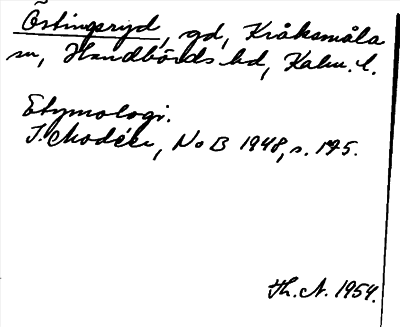 Östingsryd, gd, Kråksmåla
sn, Handbörds hd, Kalm. l.
Etymologi.
I. Modéer, NoB 1948, s. 175.
Th. A. 1954.